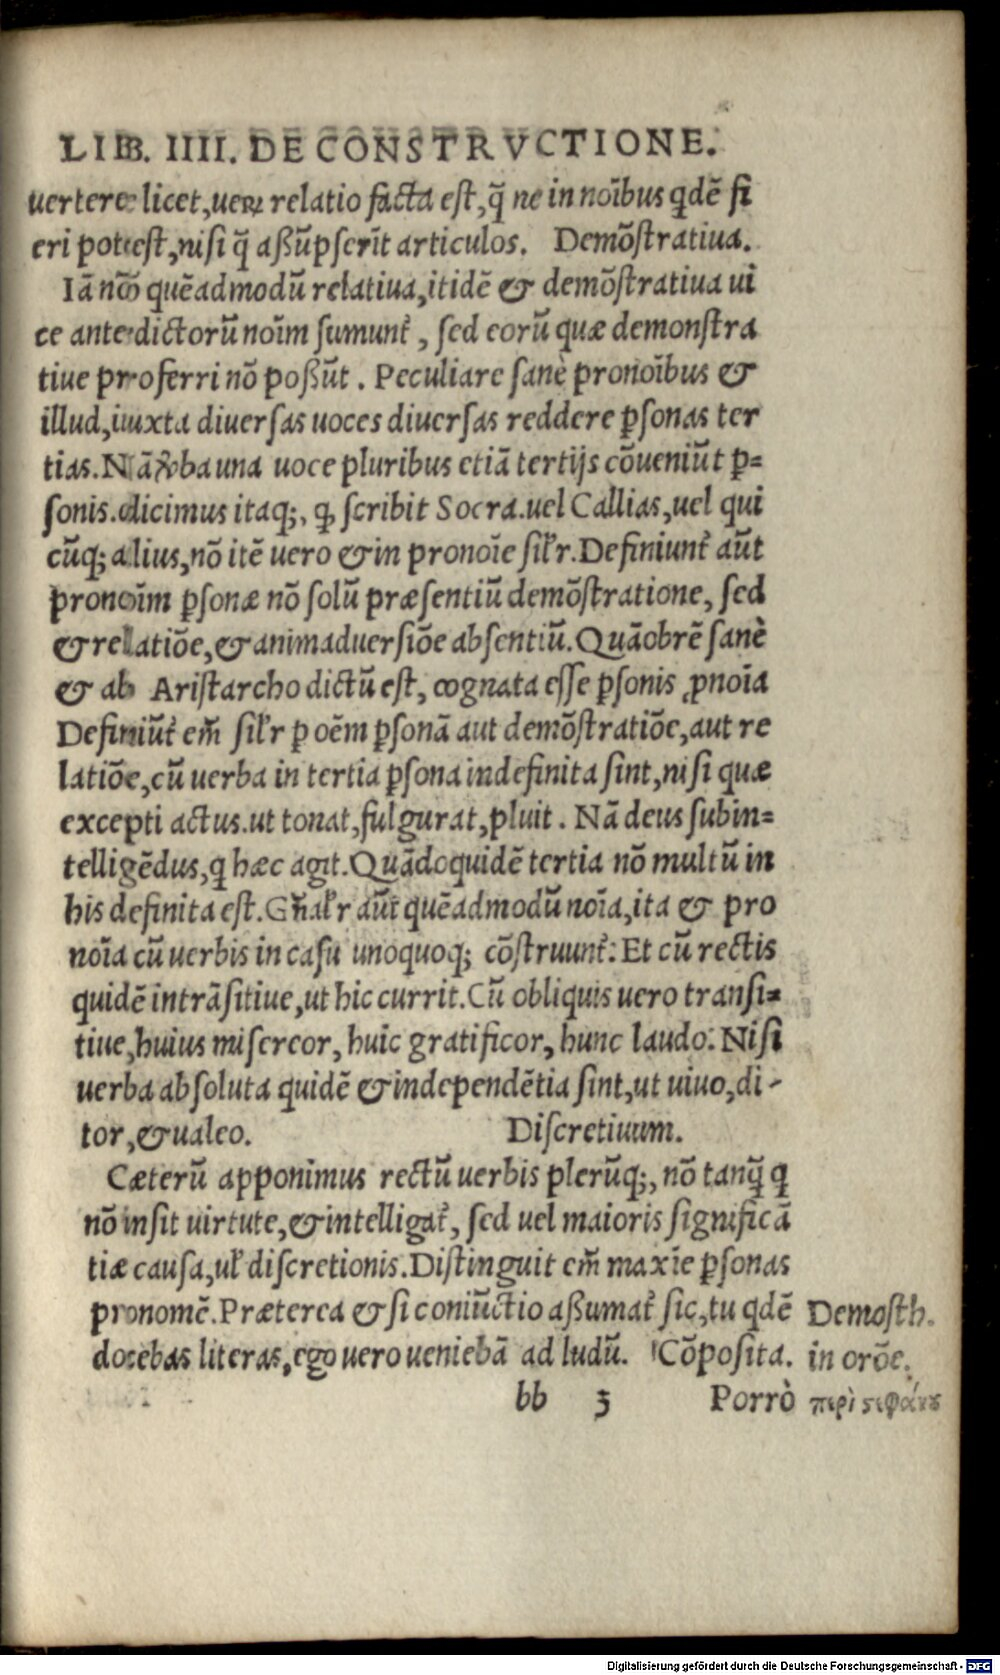 LIB. IIII. DE CONSTRVCTIONE.
uertere licet, ueꝝ relatio facta est, q̃ ne in noĩbus qdẽ fi
eri potest, nisi q̃ aßũpserĩt articulos. Demõstratiua.
Iã quẽadmodũ relatiua, itidẽ & demõstratiua ui
ce antedictorũ noĩm sumunt᷑, sed eorũ quæ demonstra
tiue proferri nõ poßũt. Peculiare sanè pronoĩbus &
illud, iuxta diuersas uoces diuersas reddere ꝑsonas ter
tias. Nã ba una uoce pluribus etiã tertijs cõueniũt ꝑ=
sonis. dicimus itaq;, scribit Socra. uel Callias, uel qui
cũq; alius, nõ itẽ uero & in pronoĩe sil'r. Definiunt᷑ aũt
pronoĩm ꝑsonæ nõ solũ præsentiũ demõstratione, sed
& relatiõe, & animaduersiõe absentiũ. Quãobrẽ sanè
& ab Aristarcho dictũ est, cognata esse ꝑsonis ꝓnoĩa
Definiũt᷑ em̃ sil'r ꝑ oẽm ꝑsonã aut demõstratiõe, aut re
latiõe, cũ uerba in tertia ꝑsona indefinita sint, nisi quæ
excepti actus. ut tonat, fulgurat, pluit. Nã deus subin=
telligẽdus, q hæc agit. Quãdoquidẽ tertia nõ multũ in
his definita est. Gñal'r aũt quẽadmodũ noĩa, ita & pro
noĩa cũ uerbis in casu unoquoq; cõstruunt᷑: Et cũ rectis
quidẽ intrãsitiue, ut hic currit. Cũ obliquis uero transi=
tiue, huius misereor, huic gratificor, hunc laudo: Nisi
uerba absoluta quidẽ & independẽtia sint, ut uiuo, di-
tor, & ualeo. Discretiuum.
Cæterũ apponimus rectũ uerbis plerũq;, nõ tanq̃ q
nõ insit uirtute, & intelligat᷑, sed uel maioris significã
tiæ causa, ul' discretionis. Distinguit em̃ maxĩe ꝑsonas
pronomẽ. Præterea & si coniũctio aßumat᷑ sic, tu qdẽ
docebas literas, ego uero ueniebã ad ludũ. Cõposita.
Demosth.
in orõe.
περὶ ςεφάνου
bb 3 Porrò
Digitalisierung gefördert durch die Deutsche Forschungsgemeinschaft - DFG